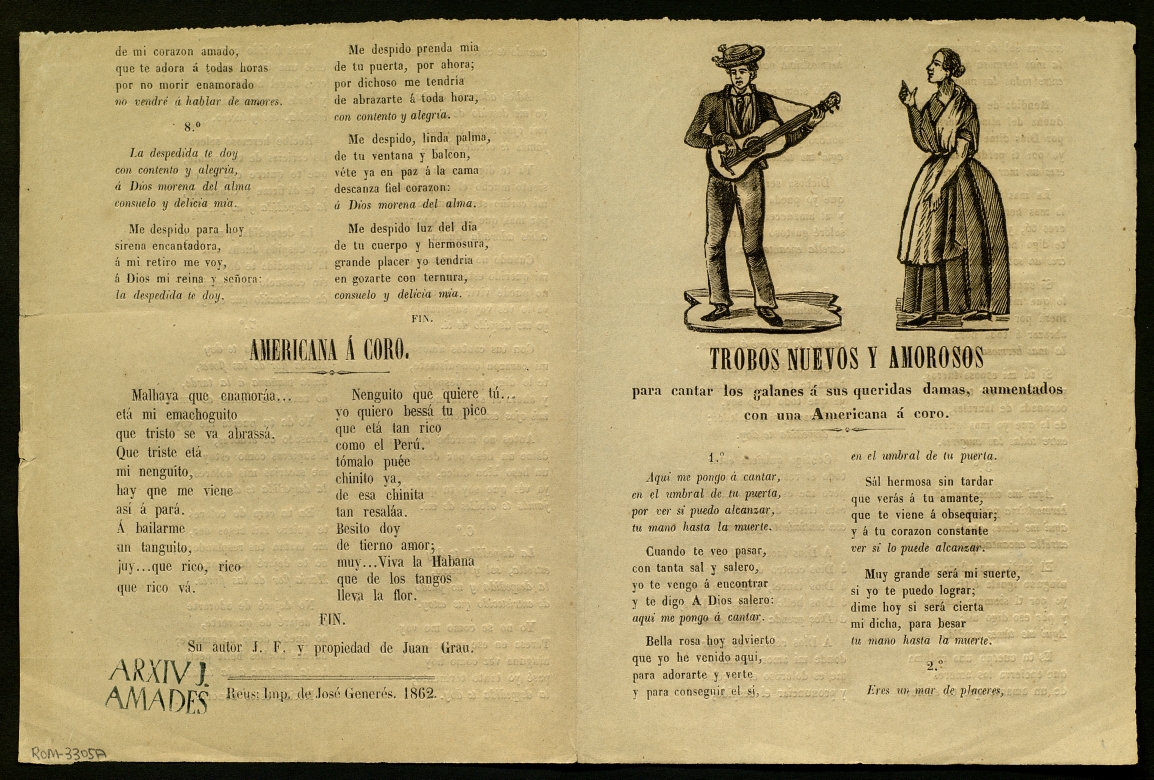 de mi corazon amado,
que te adora á todas horas
por no morir enamorado
no vendré á hablar de amores.
8.º
La despedida te doy
con contento y alegría,
á Dios morena del alma
consuelo y delicia mia.
Me despido para hoy
sirena encantadora,
á mi retiro me voy,
á Dios mi reina y señora:
la despedida te doy.
Me despido prenda mia
de tu puerta, por ahora;
por dichoso me tendría
de abrazarte á toda hora,
con contento y alegria.
Me despido, linda palma,
de tu ventana y balcon,
véte ya en paz á la cama
descanza fiel corazon:
á Dios morena del alma.
Me despido luz del dia
de tu cuerpo y hermosura,
grande placer yo tendria
en gozarte con ternura,
consuelo y delicia mia.
FIN.
AMERICANA Á CORO.
Malhaya que enamoráa...
etá mi emachoguito
que tristo se va abrassá.
Que triste etá
mi nenguito,
hay qne me viene
así á pará.
Á bailarme
un tanguito,
juy...que rico, rico
que rico vá.
Nenguito que quiere tú...
yo quiero bessá tu pico
que etá tan rico
como el Perú.
tómalo puée
chinito ya,
de esa chinita
tan resaláa.
Besito doy
de tierno amor;
muy...Viva la Habana
que de los tangos
lleva la flor.
FIN.
Su autor J. F. y propiedad de Juan Grau.
ARXIV J.
AMADES
Reus: Imp. de José Generés. 1862.
ROM-3305A
TROBOS NUEVOS Y AMOROSOS
para cantar los galanes á sus queridas damas, aumentados
con una Americana á coro.
1.º
Aqui me pongo á cantar,
en el umbral de tu puerta,
por ver si puedo alcanzar,
tu mano hasta la muerte.
Cuando te veo pasar,
con tanta sal y salero,
yo te vengo á encontrar
y te digo A Dios salero:
aqui me pongo á cantar.
Bella rosa hoy advierto
que yo he venido aqui,
para adorarte y verte
y para conseguir el sí,
en el umbral de tu puerta.
Sál hermosa sin tardar
que verás á tu amante,
que te viene á obsequiar;
y á tu corazon constante
ver si lo puede alcanzar.
Muy grande será mi suerte,
si yo te puedo lograr;
dime hoy si será cierta
mi dicha, para besar
tu mano hasta la muerte.
2.º
Eres un mar de placeres,